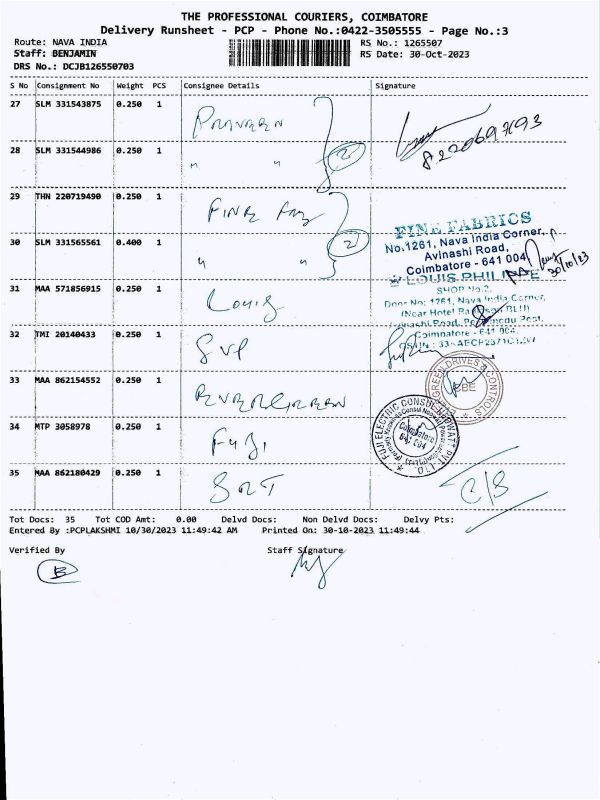 THE PROFESSIONAL COURIERS, COIMBATORE
Delivery Runsheet - PCP - Phone No.:0422-3505555 - Page No.:3
Route: NAVA INDIA RS No.: 1265507
Staff: BENJAMIN RS Date: 30-Oct-2023
DRS No.: DCJB126550703
S No Consignment No Weight PCS Consignee Details Signature
27 SLM 331543875 0.250 1 PRAVEEN 8220697193
28 SLM 331544986 0.250 1 " " 2
29 THN 220719490 0.250 1 FINE FAB
30 SLM 331565561 0.400 1 " " 2
FINE FABRICS
No.1261, Nava India Corner,
Avinashi Road,
Coimbatore - 641 004
30/10/23
31 MAA 571856915 0.250 1 Louis
LOUIS PHILIPPE
SHOP No.2,
Door No: 1261, Nava India Corner,
(Near Hotel
Avinashi Road, Peelamedu Post,
Coimbatore - 641 004.
32 TMI 20140433 0.250 1 SVP
33 MAA 862154552 0.250 1 EVERGREEN
EVERGREEN DRIVES & CONTROLS
CBE
34 MTP 3058978 0.250 1 FUJI
FUJI ELECTRIC CONSUL NEOWATT PVT. LTD.
Coimbatore
641 004
35 MAA 862180429 0.250 1 SRT C/S
Tot Docs: 35 Tot COD Amt: 0.00 Delvd Docs: Non Delvd Docs: Delvy Pts:
Entered By :PCPLAKSHMI 10/30/2023 11:49:42 AM Printed On: 30-10-2023 11:49:44
Verified By Staff Signature
B